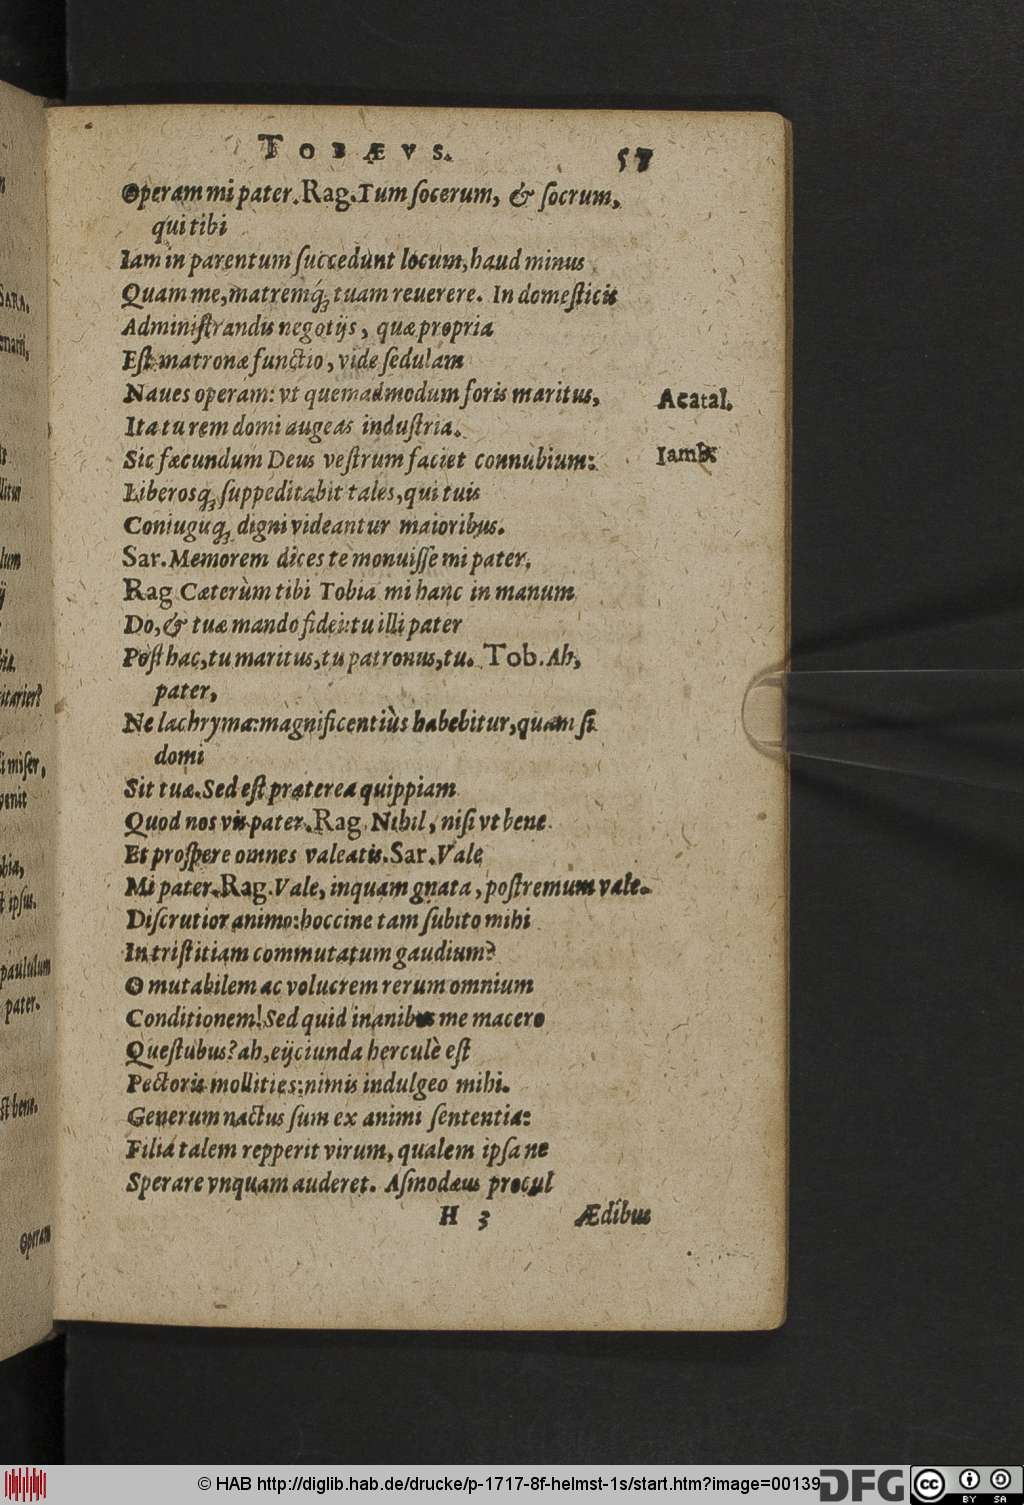 TOBÆVS. 57
Operam mi pater. Rag. Tum socerum, & socrum,
qui tibi
Iam in parentum succedunt locum, haud minus
Quam me, matremq́; tuam reuerere. In domesticis
Administrandis negotijs, quæ propria
Est matronæ functio, vide sedulam
Naues operam: vt quemadmodum foris maritus, Acatal.
Ita tu rem domi augeas industria.
Sic fœcundum Deus vestrum faciet connubium: Iamb.
Liberosq; suppeditabit tales, qui tuis
Coniugijq; digni videantur maioribus.
Sar. Memorem dices te monuisse mi pater.
Rag Cæterùm tibi Tobia mi hanc in manum
Do, & tuæ mando fidei: tu illi pater
Post hac, tu maritus, tu patronus, tu. Tob. Ah,
pater,
Ne lachrymæ: magnificentiùs habebitur, quam si
domi
Sit tuæ. Sed est præterea quippiam
Quod nos vis pater. Rag Nihil, nisi vt bene
Et prospere omnes valeatis. Sar. Vale
Mi pater. Rag. Vale, inquam gnata, postremum vale.
Discrutior animo: hoccine tam subito mihi
In tristitiam commutatum gaudium?
O mutabilem ac volucrem rerum omnium
Conditionem! Sed quid inanibus me macero
Questubus? ah, eijciunda herculè est
Pectoris mollities: nimis indulgeo mihi.
Generum nactus sum ex animi sententia:
Filia talem repperit virum, qualem ipsa ne
Sperare vnquam auderet. Asmodæus procul
H 3 Ædibus
© HAB http://diglib.hab.de/drucke/p-1717-8f-helmst-1s/start.htm?image=00139
DFG
cc BY SA